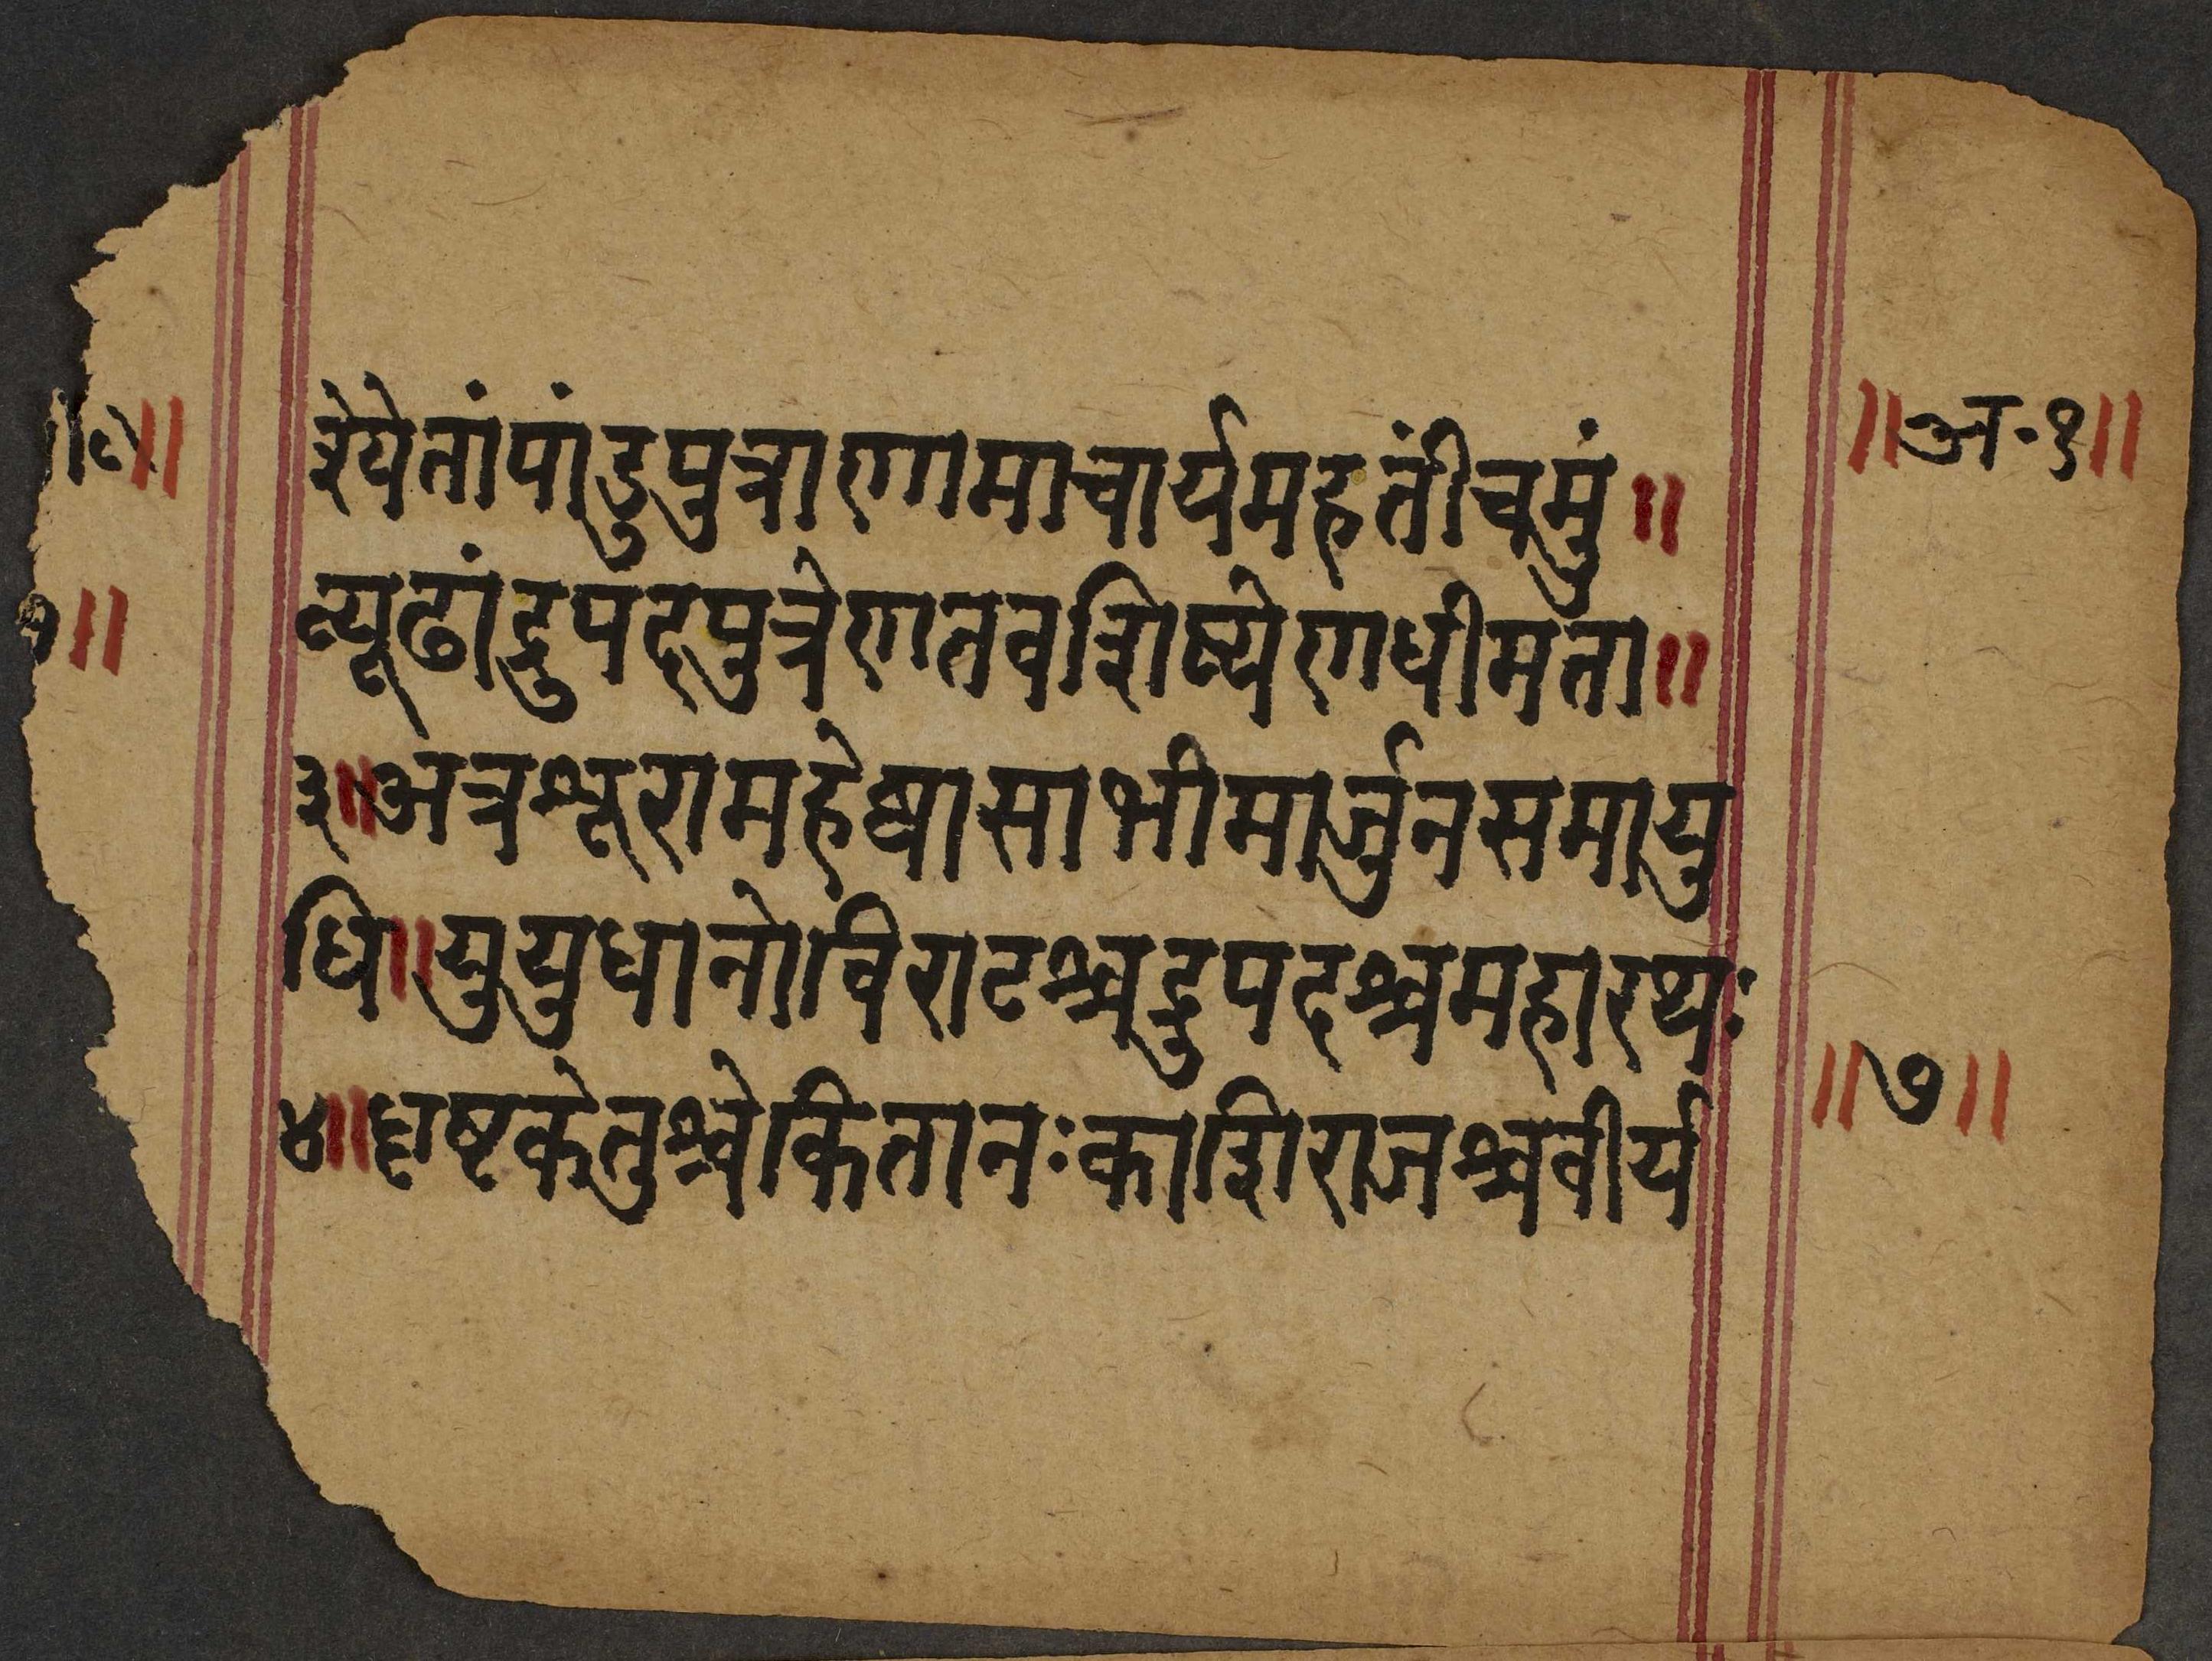 ॥अ॰१॥
रेयेतांपांडुपुत्राणामाचार्यमहतींचमुं॥
व्यूढांद्रुपदपुत्रेणतवशिष्येणधीमता॥
३॥अत्रश्शूरामहेष्वासाभीमार्जुनसमायु
धि॥युयुधानोविराटश्चद्रुपदश्चमहारथः
४॥धृष्टकेतुश्चेकितानःकाशिराजश्चवीर्य
॥७॥